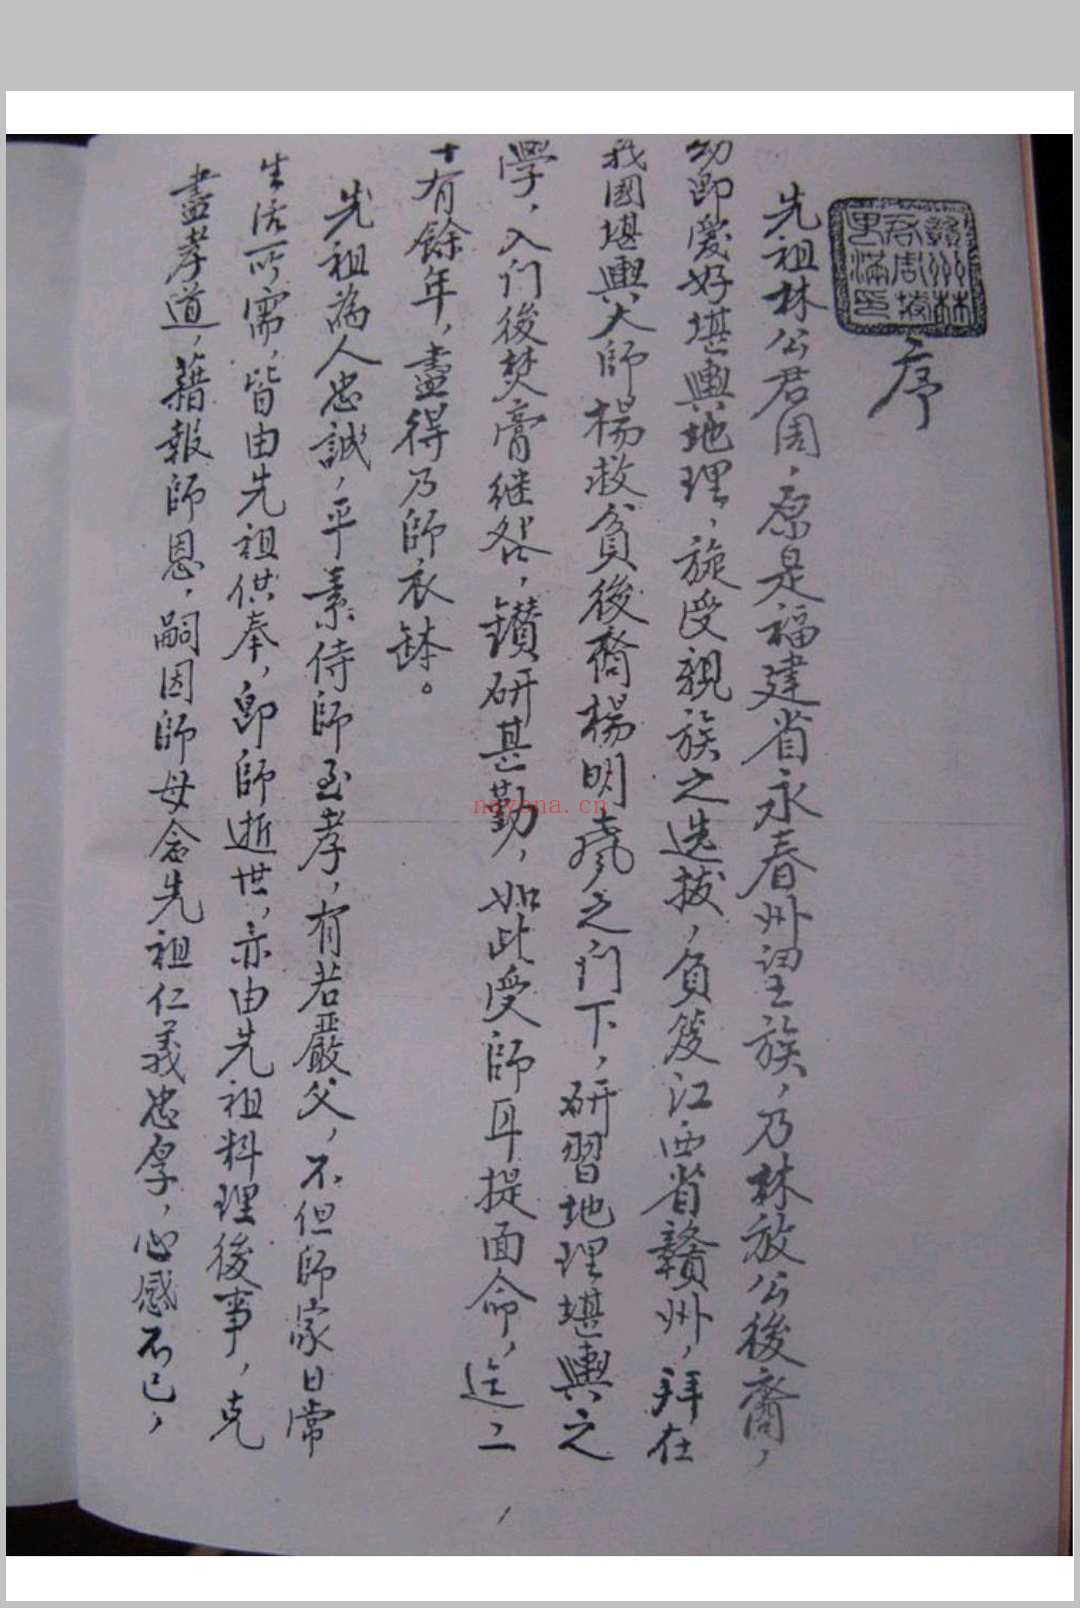 序
先祖林公君周，原是福建省永春州望族，乃林放公後裔，
幼即愛好堪輿地理，旋受親族之选拔，負笈江西省贛州，拜在
我國堪輿大師楊救貧後裔楊明之門下，研習地理堪輿之
學，入门後焚膏继晷，鑽研甚勤，如此受師耳提面命，迄二
十有餘年，盡得乃師衣缽。
先祖為人忠誠，平素侍師至孝，有若嚴父，不但師家日常
生活所需，皆由先祖供奉，即師逝世，亦由先祖料理後事，克
盡孝道，藉報師恩，嗣因師母念先祖仁義忠厚，心感不已，
1
nayona.cn